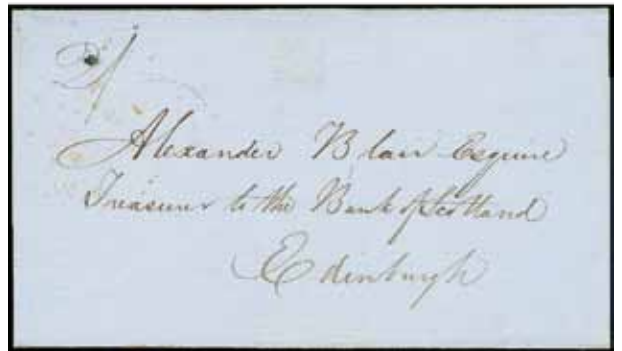 Alexander Blair Esquire
Treasurer to the Bank of Scotland
Edinburgh